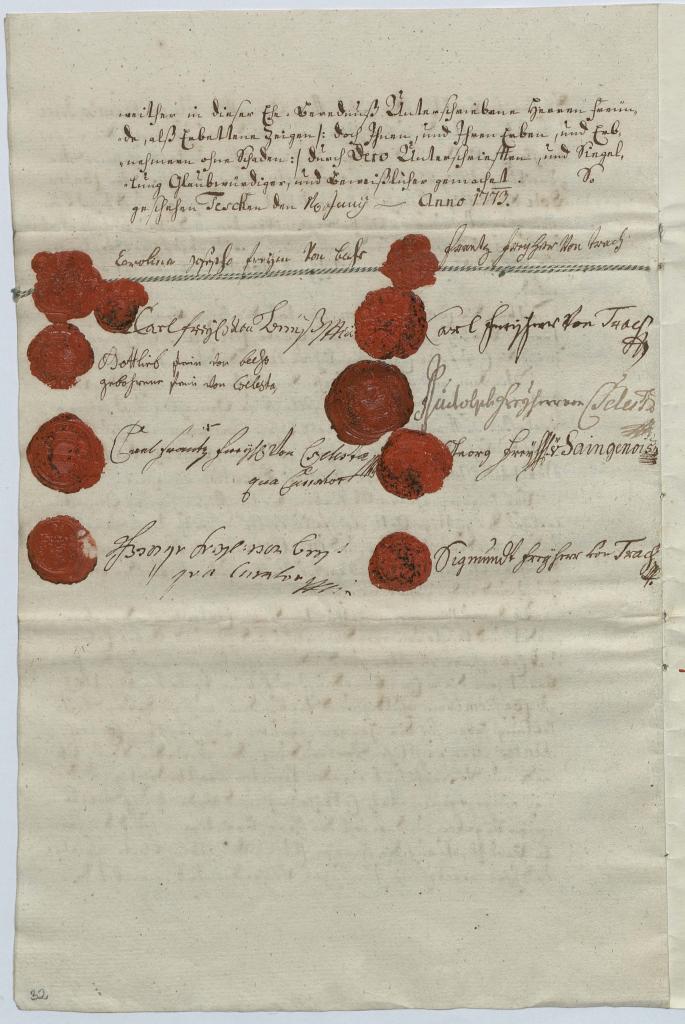 weither in dieser Ehe-Berednuß Unterschriebene Herren Freün-
de, alß Erbettene Zeügen /: doch Ihnen, und Ihren Erben, und Erb-
nehmern ohne Schaden :/ durch Dero Unterschrifften, und Siegel-
lung Glaubwürdiger, und Beweißlicher gemachet. So
geschehen den Juny Anno 1773.
Carolina Josepha Freyin von
Frantz Freyherr von Trach
Carl Freyh von
Carl Freyherr von Trach
Gottlieb von
gebohrene von Celesta
Rudolph Freyherr von Celesta
Carl Frantz Freyh von Celesta
qua Curator
Georg Frey v Saingenois
qua Curator
Sigmundt Freyherr von Trach
32